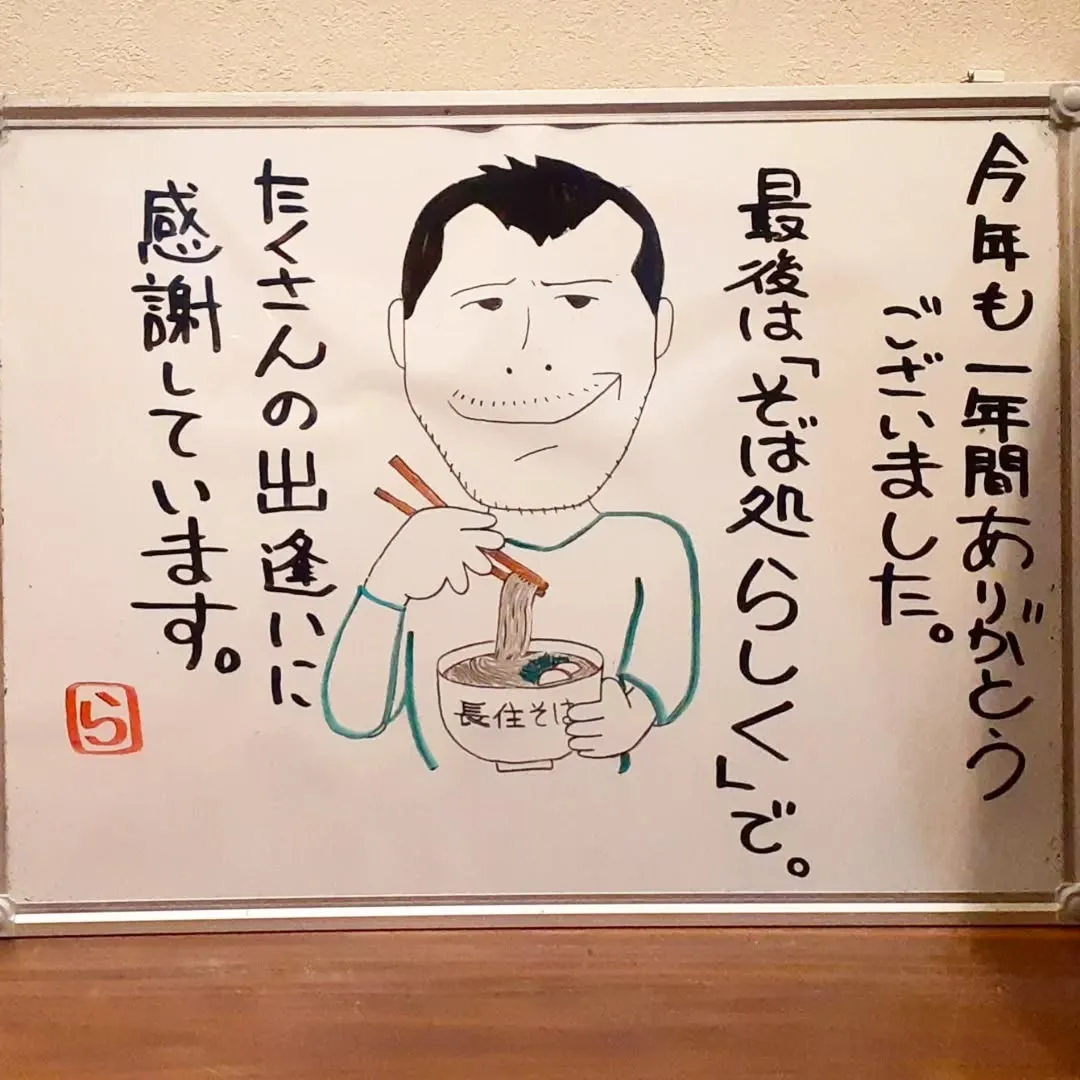 今年も一年間ありがとう
ございました。
最後は「そば処らしく」で。
長住そば
たくさんの出逢いに
感謝しています。
ら